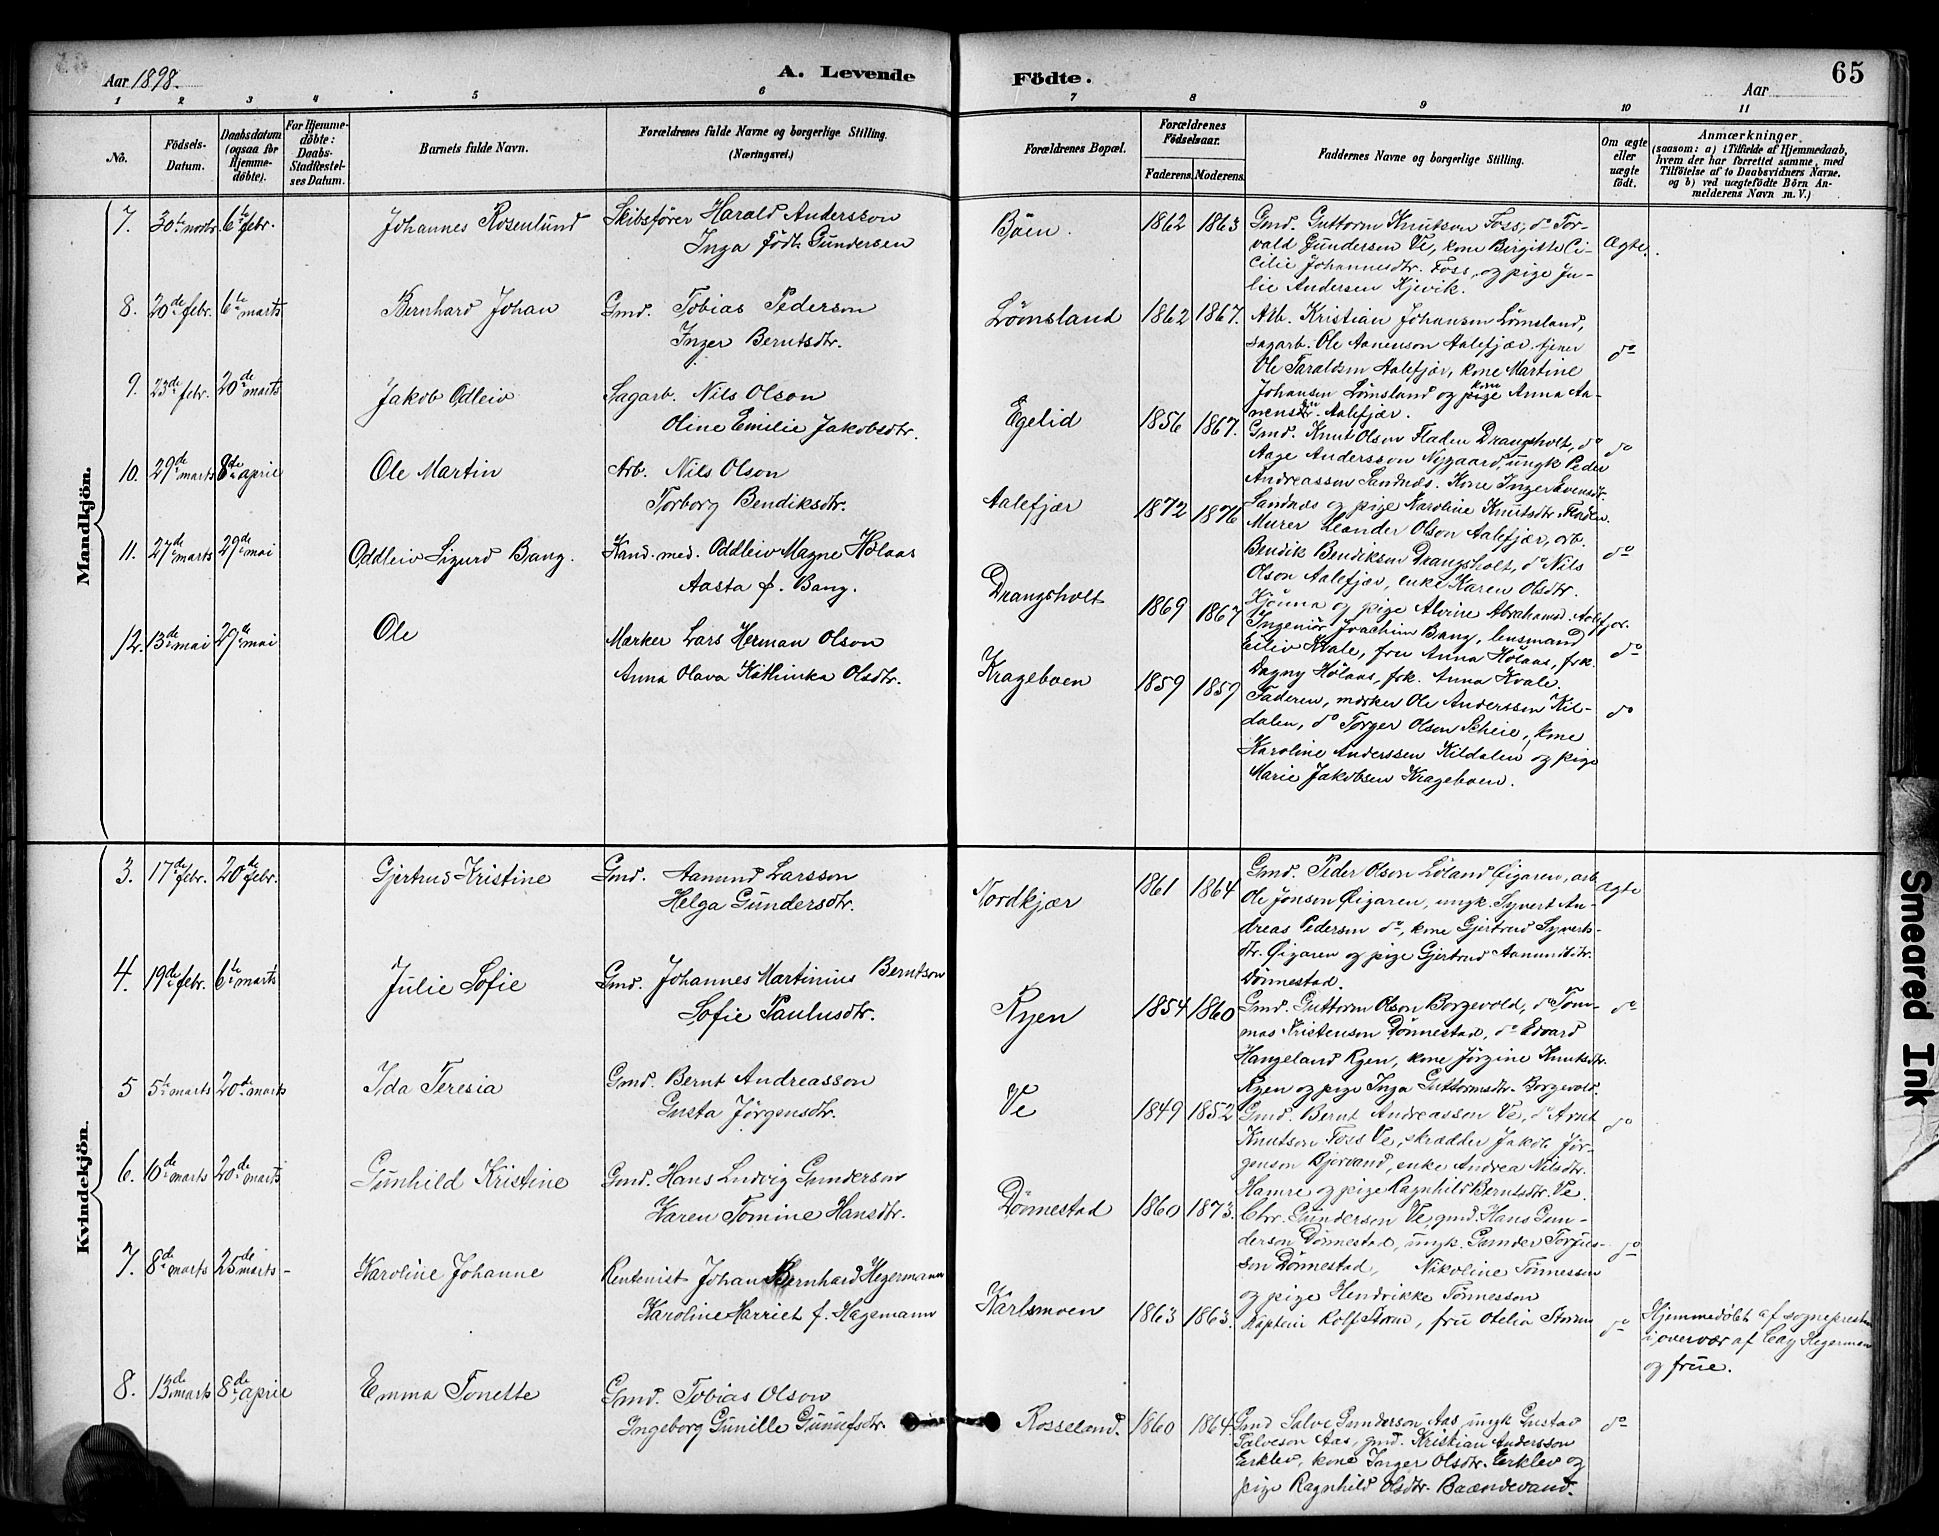 Aar 1898.
A. Levende
Födte.
Aar
65
1 2 3 4 5 6 7 8 9 10 11
No.
Födsels-
Datum.
Daabsdatum
(ogsaa for
Hjemme-
döbte).
For Hjemme-
döbte:
Daabs-
Stadfæstel-
ses Datum.
Barnets fulde Navn.
Forældrenes fulde Navne og borgerlige Stilling.
(Næringsvei.)
Forældrenes Bopæl.
Forældrenes
Födselsaar.
Faderens. Moderens.
Faddernes Navne og borgerlige Stilling.
Om ægte
eller
uægte
födt.
Anmærkninger.
(saasom: a) i Tilfælde af Hjemmedaab,
hvem der har forrettet samme, med
Tilföielse af to Daabsvidners Navne.
og b) ved uægtefödte Börn An-
melderens Navn m. V.)
Mandkjön.
7. 30te novbr. 6te febr. Johannes Rosenlund Skibsfører Harald Andersson
Inga født Gundersen
Bøen. 1862 1863 Gmd. Guttorm Knutson Foss, do Tor-
vald Gundersen Ve, kone Birgitte Ci-
cilie Johannesdtr. Foss, og pige Ju-
lie Andersen Kjevik.
Ægte.
8. 20de febr. 6te marts Bernhard Johan Gmd. Tobias Pederson
Inger Berntsdtr.
Lømsland 1862 1867. Arb. Kristian Johansen Lømsland,
sagarb. Ole Aanenson Aalefjær, tjener
Ole Taraldsen Aalefjær, kone Martine
Johansen Lømsland og kone Anna Aa-
nensdtr. Aalefjær.
do
9. 23de febr. 20de marts Jakob Odleiv Sagarb. Nils Olson
Oline Emilie Jakobsdtr.
Egelid 1856 1867. Gmd. Knut Olson Fladen Drangsholt, do
Aage Andersson Nygaard, ungk Peder
Andreassen Sandnes. Kone Inger Evensdt.
Sandnes og pige Karoline Knutsdtr. Fladen.
do
10. 29de marts 8de april Ole Martin Arb. Nils Olson
Torborg Bendiksdtr.
Aalefjær 1872 1876 Murer Leander Olson Aalefjær, arb.
Bendik Bendiksen Drangsholt, do Nils
Olson Aalefjær, enke Karen Olsdtr.
og pige Alvine Abrahamsd. Aalefjær.
do
11. 27de marts 29de mai Oddleiv Sigurd Bang. Kand. med. Oddleiv Magne Hølaas
Aasta f. Bang.
Drangsholt 1869 1867 Ingeniør Joachim Bang, lensmand
Eiliv Kvale, fru Anna Hølaas, frk.
Dagny Hølaas, frk. Anna Kvale.
do
12. 13de mai 29de mai Ole Mærker Lars Herman Olson
Anna Olava Kathinka Olsdtr.
Krageboen 1859 1859 Faderen, mærker Ole Anderssen Kil-
dalen, do Torger Olson Scheie, kone
Karoline Anderssen Kildalen og pige
Marie Jakobsen Krageboen.
do
Kvindekjön.
3. 17de febr. 20de febr. Gjertrud Kristine Gmd. Aamund Larsson
Helga Gundersdtr.
Nordkjær 1861 1864 Gmd. Peder Olson Løland Øigaren, arb
Ole Jonson Øigaren, ungk. Syvert An-
dreas Pedersen do, kone Gjertrud Syverts-
dtr. Øigaren og pige Gjertrud Aamundsdtr.
Dønnestad.
ægte
4. 19de febr. 6te marts Julie Sofie Gmd. Johannes Martinius Berntson
Sofie Paulusdtr.
Ryen 1854 1860 Gmd. Guttorm Olson Borgevold, do Tom-
mas Kristensen Dønnestad, do Edvard
Hangeland Ryen, kone Jørgine Knutsdtr.
Ryen og pige Inga Guttormsdtr. Borgevold.
do
5 5te marts 20de marts Ida Teresia Gmd. Bernt Andreasson
Gusta Jørgensdtr.
Ve 1849 1852 Gmd. Bernt Andreasson Ve, do Arnt
Knutson Foss Ve, skrædder Jakob Jør-
genson Bjorvand, enke Andrea Nilsdtr.
Hamre og pige Ragnhild Berntsdtr. Ve.
do
6. 10de marts 20de marts Gunhild Kristine Gmd. Hans Ludvig Gunderson
Karen Tomine Hansdtr.
Dønnestad 1860 1873. Chr. Gunderson Ve, gmd. Hans Gun-
derson Dønnestad, ungk. Gunder Torjus-
son Dønnestad, Nikoline Tønnessen
og pige Hendrikke Tønnesson
do
7. 8de marts 25de marts Karoline Johanne Rentenist Johan Bernhard Hegermann
Karoline Harriet f. Hagemann
Karlsmoen 1863 1863. Kaptein Rolf Storm, fru Otelia Storm
do Hjemmedøbt af sognepresten
i overvær af Cay Hegerman
og frue.
8. 13de marts 8de april Emma Tonette Gmd. Tobias Olson
Ingeborg Gunille Gunufsdtr.
Rosseland. 1860 1864. Gmd Salve Gunderson Aas, ungk Gustav
Salveson Aas, gmd. Kristian Andersson
Erklev, kone Inger Olsdtr. Erklev og
pige Ragnhild Olsdtr. Baandevand.
do
Smeared Ink